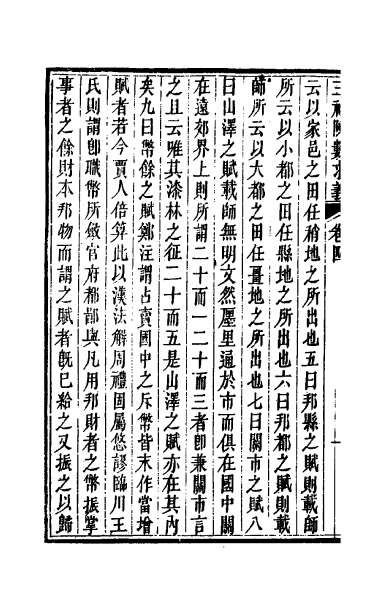 三禮陳數求義 卷四
云以家邑之田任稍地之所出也五日邦縣之賦則載師
所云以小都之田任縣地之所出也六日邦都之賦則載
師所云以大都之田任畺地之所出也七日關市之賦八
日山澤之賦載師無明文然廛里通於市而俱在國中關
在遠郊界上則所謂二十而一二十而三者卽兼關市言
之且云唯其漆林之征二十而五是山澤之賦亦在其內
矣九日幣餘之賦鄭注謂占賣國中之斥幣皆末作當增
賦者若今賈人倍算此以漢法解周禮固屬悠謬臨川王
氏則謂卽職幣所斂官府都鄙與凡用邦財者之幣振掌
事者之餘財本邦物而謂之賦者旣已給之又振之以歸